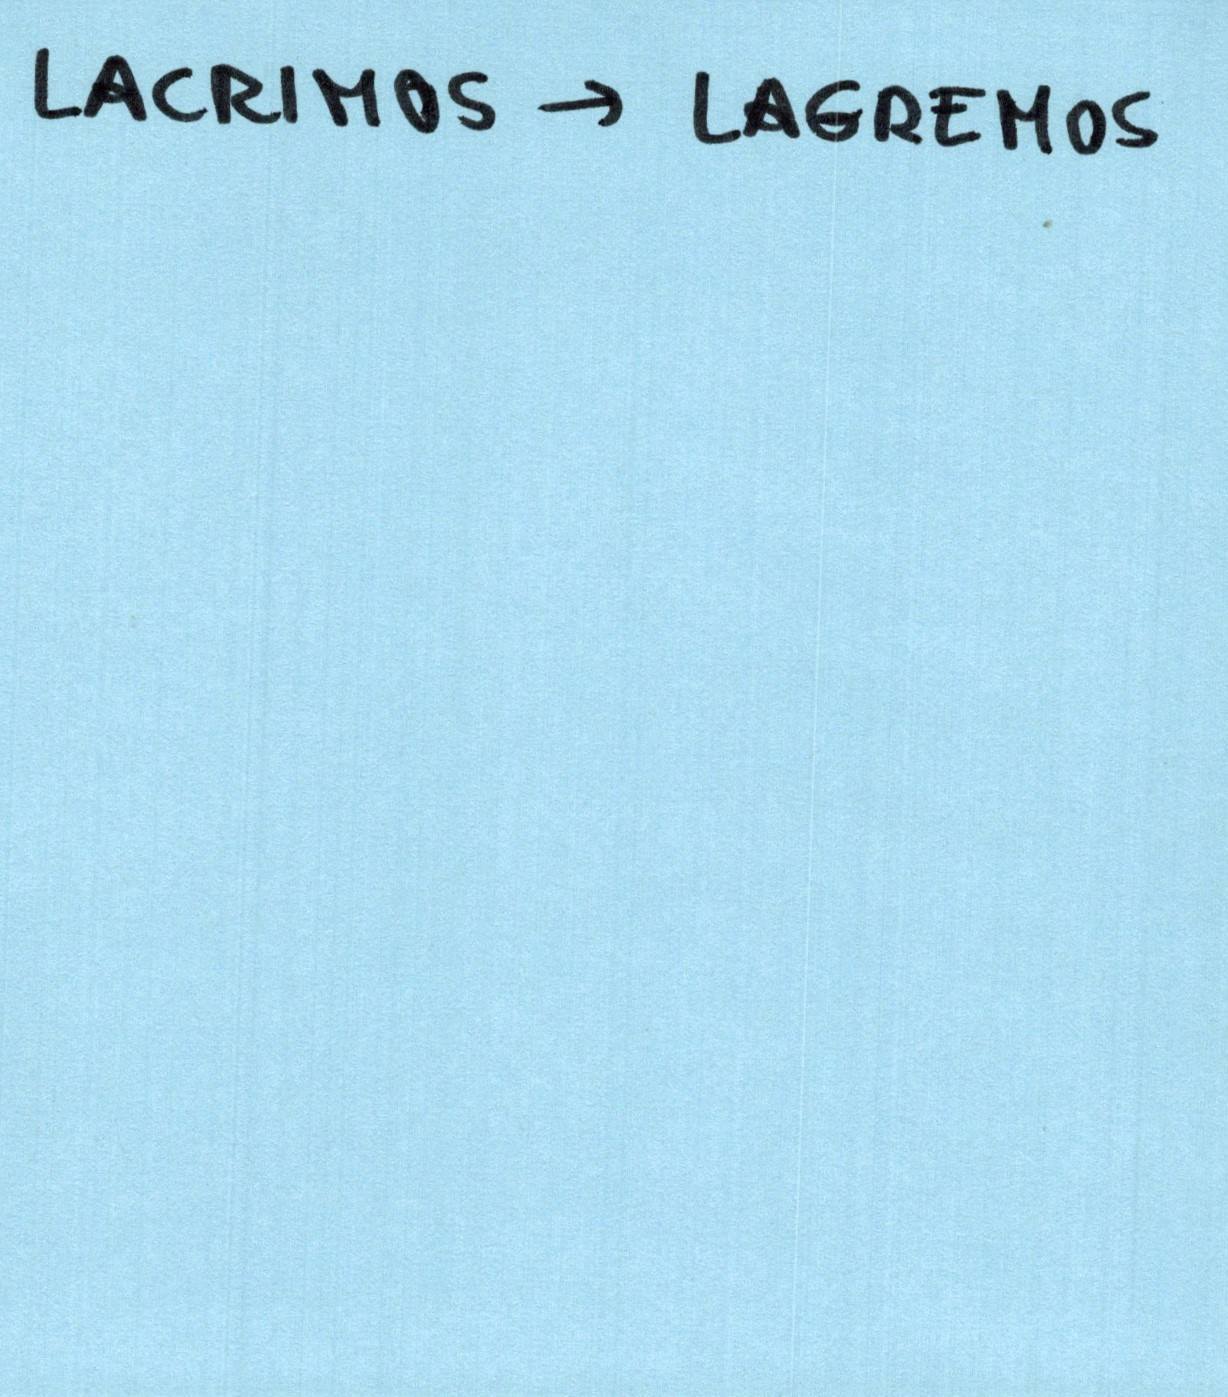 LACRIMOS → LAGREMOS